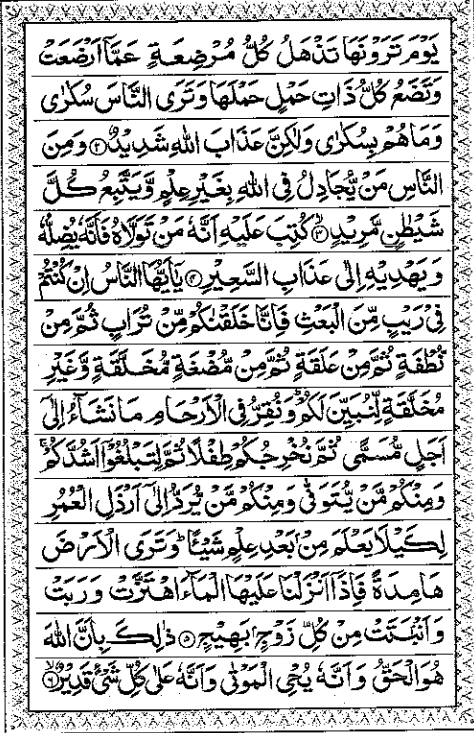 يَوْمَ تَرَوْنَهَا تَذْهَلُ كُلُّ مُرْضِعَةٍ عَمَّآ اَرْضَعَتْ
وَتَضَعُ كُلُّ ذَاتِ حَمْلٍ حَمْلَهَا وَتَرَى النَّاسَ سُكٰرٰى
وَمَا هُمْ بِسُكٰرٰى وَلٰكِنَّ عَذَابَ اللّٰهِ شَدِيْدٌ ۝۲ وَمِنَ
النَّاسِ مَنْ يُّجَادِلُ فِى اللّٰهِ بِغَيْرِ عِلْمٍ وَّيَتَّبِعُ كُلَّ
شَيْطٰنٍ مَّرِيْدٍ ۝۳ كُتِبَ عَلَيْهِ اَنَّهٗ مَنْ تَوَلَّاهُ فَاَنَّهٗ يُضِلُّهٗ
وَيَهْدِيْهِ اِلٰى عَذَابِ السَّعِيْرِ ۝۴ يٰٓاَيُّهَا النَّاسُ اِنْ كُنْتُمْ
فِىْ رَيْبٍ مِّنَ الْبَعْثِ فَاِنَّا خَلَقْنٰكُمْ مِّنْ تُرَابٍ ثُمَّ مِنْ
نُّطْفَةٍ ثُمَّ مِنْ عَلَقَةٍ ثُمَّ مِنْ مُّضْغَةٍ مُّخَلَّقَةٍ وَّغَيْرِ
مُخَلَّقَةٍ لِّنُبَيِّنَ لَكُمْ وَنُقِرُّ فِى الْاَرْحَامِ مَا نَشَآءُ اِلٰٓى
اَجَلٍ مُّسَمًّى ثُمَّ نُخْرِجُكُمْ طِفْلًا ثُمَّ لِتَبْلُغُوْٓا اَشُدَّكُمْ
وَمِنْكُمْ مَّنْ يُّتَوَفّٰى وَمِنْكُمْ مَّنْ يُّرَدُّ اِلٰٓى اَرْذَلِ الْعُمُرِ
لِكَيْلَا يَعْلَمَ مِنْ بَعْدِ عِلْمٍ شَيْـًٔا وَتَرَى الْاَرْضَ
هَامِدَةً فَاِذَآ اَنْزَلْنَا عَلَيْهَا الْمَآءَ اهْتَزَّتْ وَرَبَتْ
وَاَنْۢبَتَتْ مِنْ كُلِّ زَوْجٍۭ بَهِيْجٍ ۝۵ ذٰلِكَ بِاَنَّ اللّٰهَ
هُوَ الْحَقُّ وَاَنَّهٗ يُحْىِ الْمَوْتٰى وَاَنَّهٗ عَلٰى كُلِّ شَىْءٍ قَدِيْرٌ ۝۶